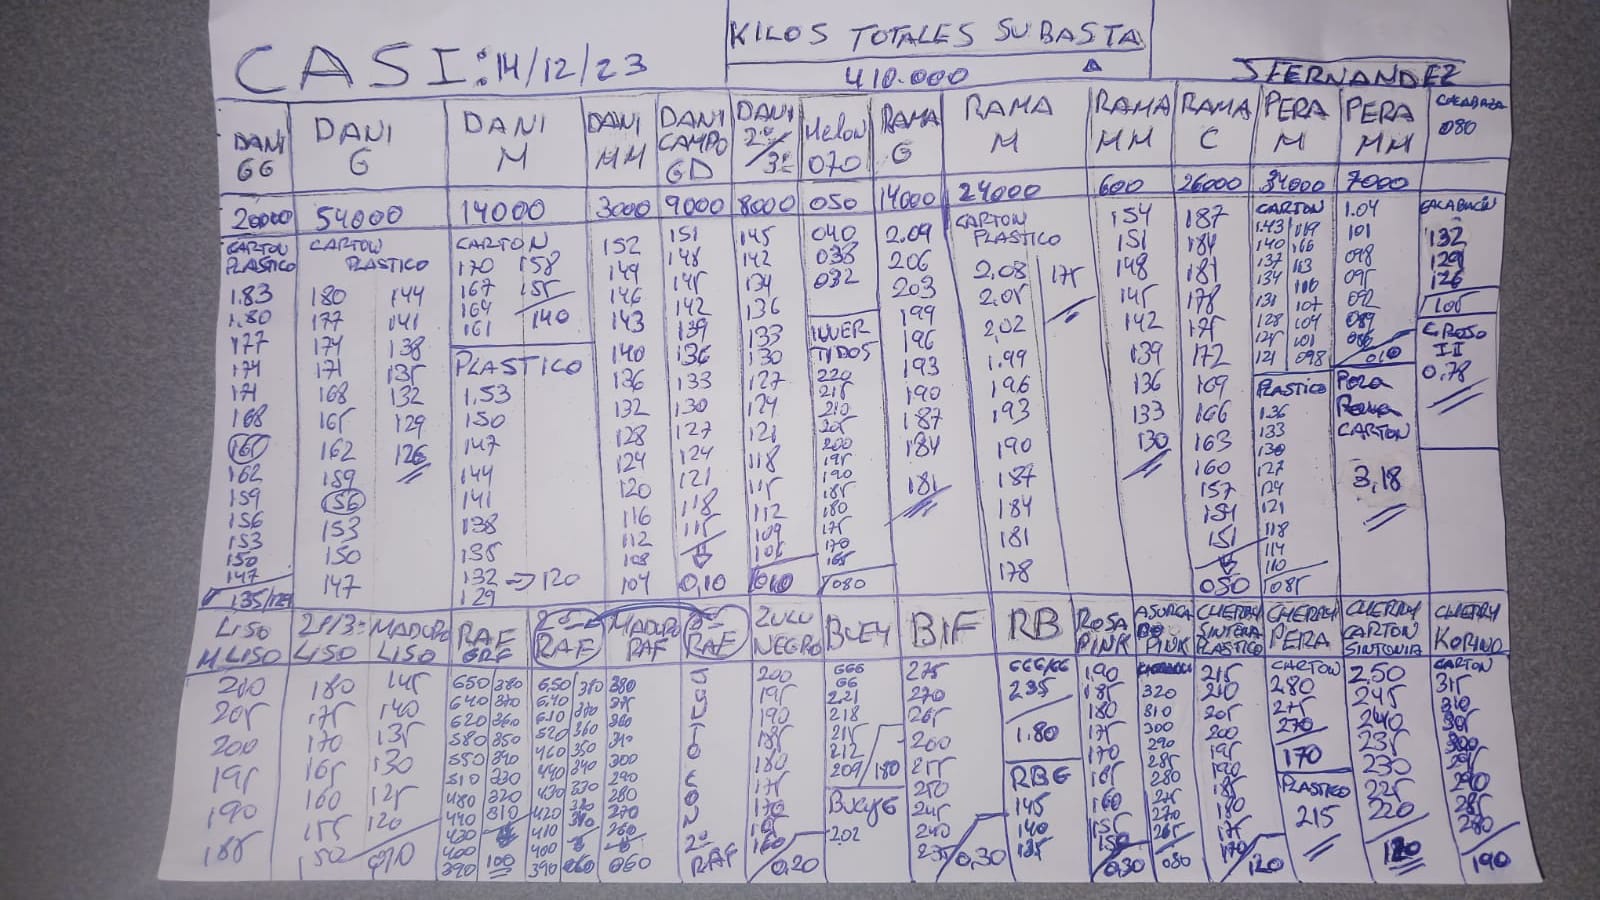 CASI: 14/12/23
KILOS TOTALES SUBASTA
410.000
SFERNANDEZ
DANI GG
20000
CARTON
PLASTICO
1.83
1.80
177
174
171
168
162
159
156
153
150
147
135/129
DANI G
54000
CARTON
PLASTICO
180 144
177 141
174 138
171 135
168 132
165 129
162 126
159
156
153
150
147
DANI M
14000
CARTON
170 158
167 155
164 140
161
PLASTICO
1.53
150
147
144
141
138
135
132 → 120
129
DANI MM
3000
152
149
146
143
140
136
132
128
124
120
116
112
108
104
DANI CAMPO GD
9000
151
148
145
142
139
136
133
130
127
124
121
118
115
0,10
DANI 2ª/3ª
8000
145
142
136
133
130
127
124
121
118
115
112
109
106
010
Melon 070
050
040
038
032
INVER
TIDOS
220
215
210
205
200
195
190
185
180
175
170
165
080
RAMA G
14000
2.09
206
203
199
196
193
190
187
184
181
RAMA M
24000
CARTON
PLASTICO
2,08 175
2.05
2,02
1.99
196
193
190
187
184
181
178
RAMA MM
600
154
151
148
145
142
139
136
133
130
RAMA C
26000
187
184
181
178
175
172
169
166
163
160
157
154
151
050
PERA M
34000
CARTON
1.43 119
140 116
137 113
134 110
131 107
128 104
125 101
121 098
PLASTICO
1.36
133
130
127
124
121
118
114
110
085
PERA MM
7000
1.04
101
098
095
092
089
086
010
PERA
CARTON
3,18
CALABAZA
080
CALABACIN
132
129
126
105
G.ROSO
II
0.78
LISO
M LISO
210
205
200
195
190
185
2ª/3ª
LISO
180
175
170
165
160
155
150
MADURO
LISO
145
140
135
130
125
120
070
RAF
GRF
650 380
640 370
620 360
580 350
550 340
510 330
480 320
440 310
420
400 100
390
RAF
650 380
640 370
610 370
520 360
460 350
440 340
430 330
420
410
400
390 060
MADURO
RAF
380
375
360
310
300
290
280
270
260
060
RAF
2ª
RAF
ZULU
NEGRO
200
195
190
185
180
175
170
165
160
0,20
BUEY
GGG
GG
2.21
218
215
212
209 180
BUEY G
202
BIF
275
270
265
260
255
250
245
240
235
0,30
RB
GGG/GG
235
1.80
RBG
145
140
135
ROSA
PINK
190
185
180
175
170
165
160
155
150
0,30
PINK
320
310
300
290
285
280
275
270
265
080
CHERRY
SINTONIA
PLASTICO
215
210
205
200
195
190
185
180
175
170
120
CHERRY
PERA
CARTON
280
275
270
170
PLASTICO
215
CHERRY
CARTON
SINTONIA
2.50
245
240
235
230
225
220
120
CHERRY
KORINO
CARTON
315
310
305
300
295
290
285
280
190